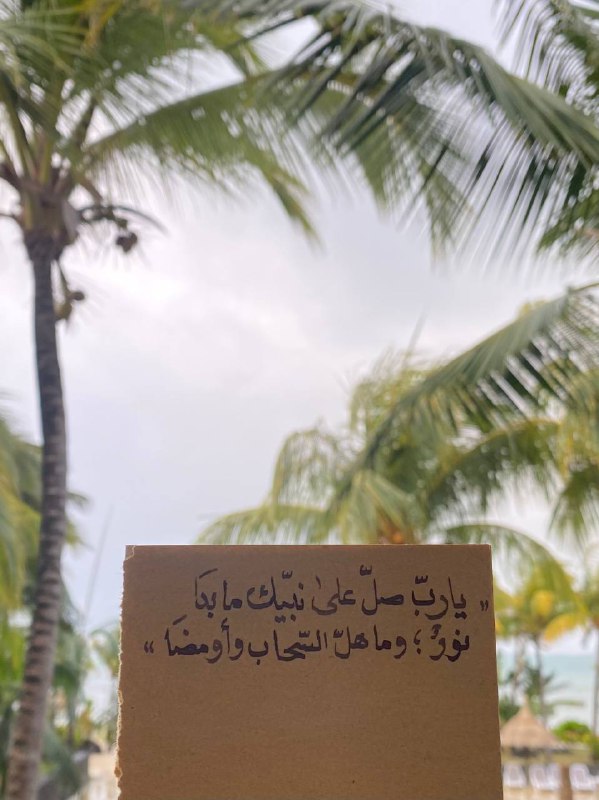 „ ياربّ صلّ على نبيّك ما بدَا
نورٌ ؛ وما هلّ السّحاب وأومضَا “